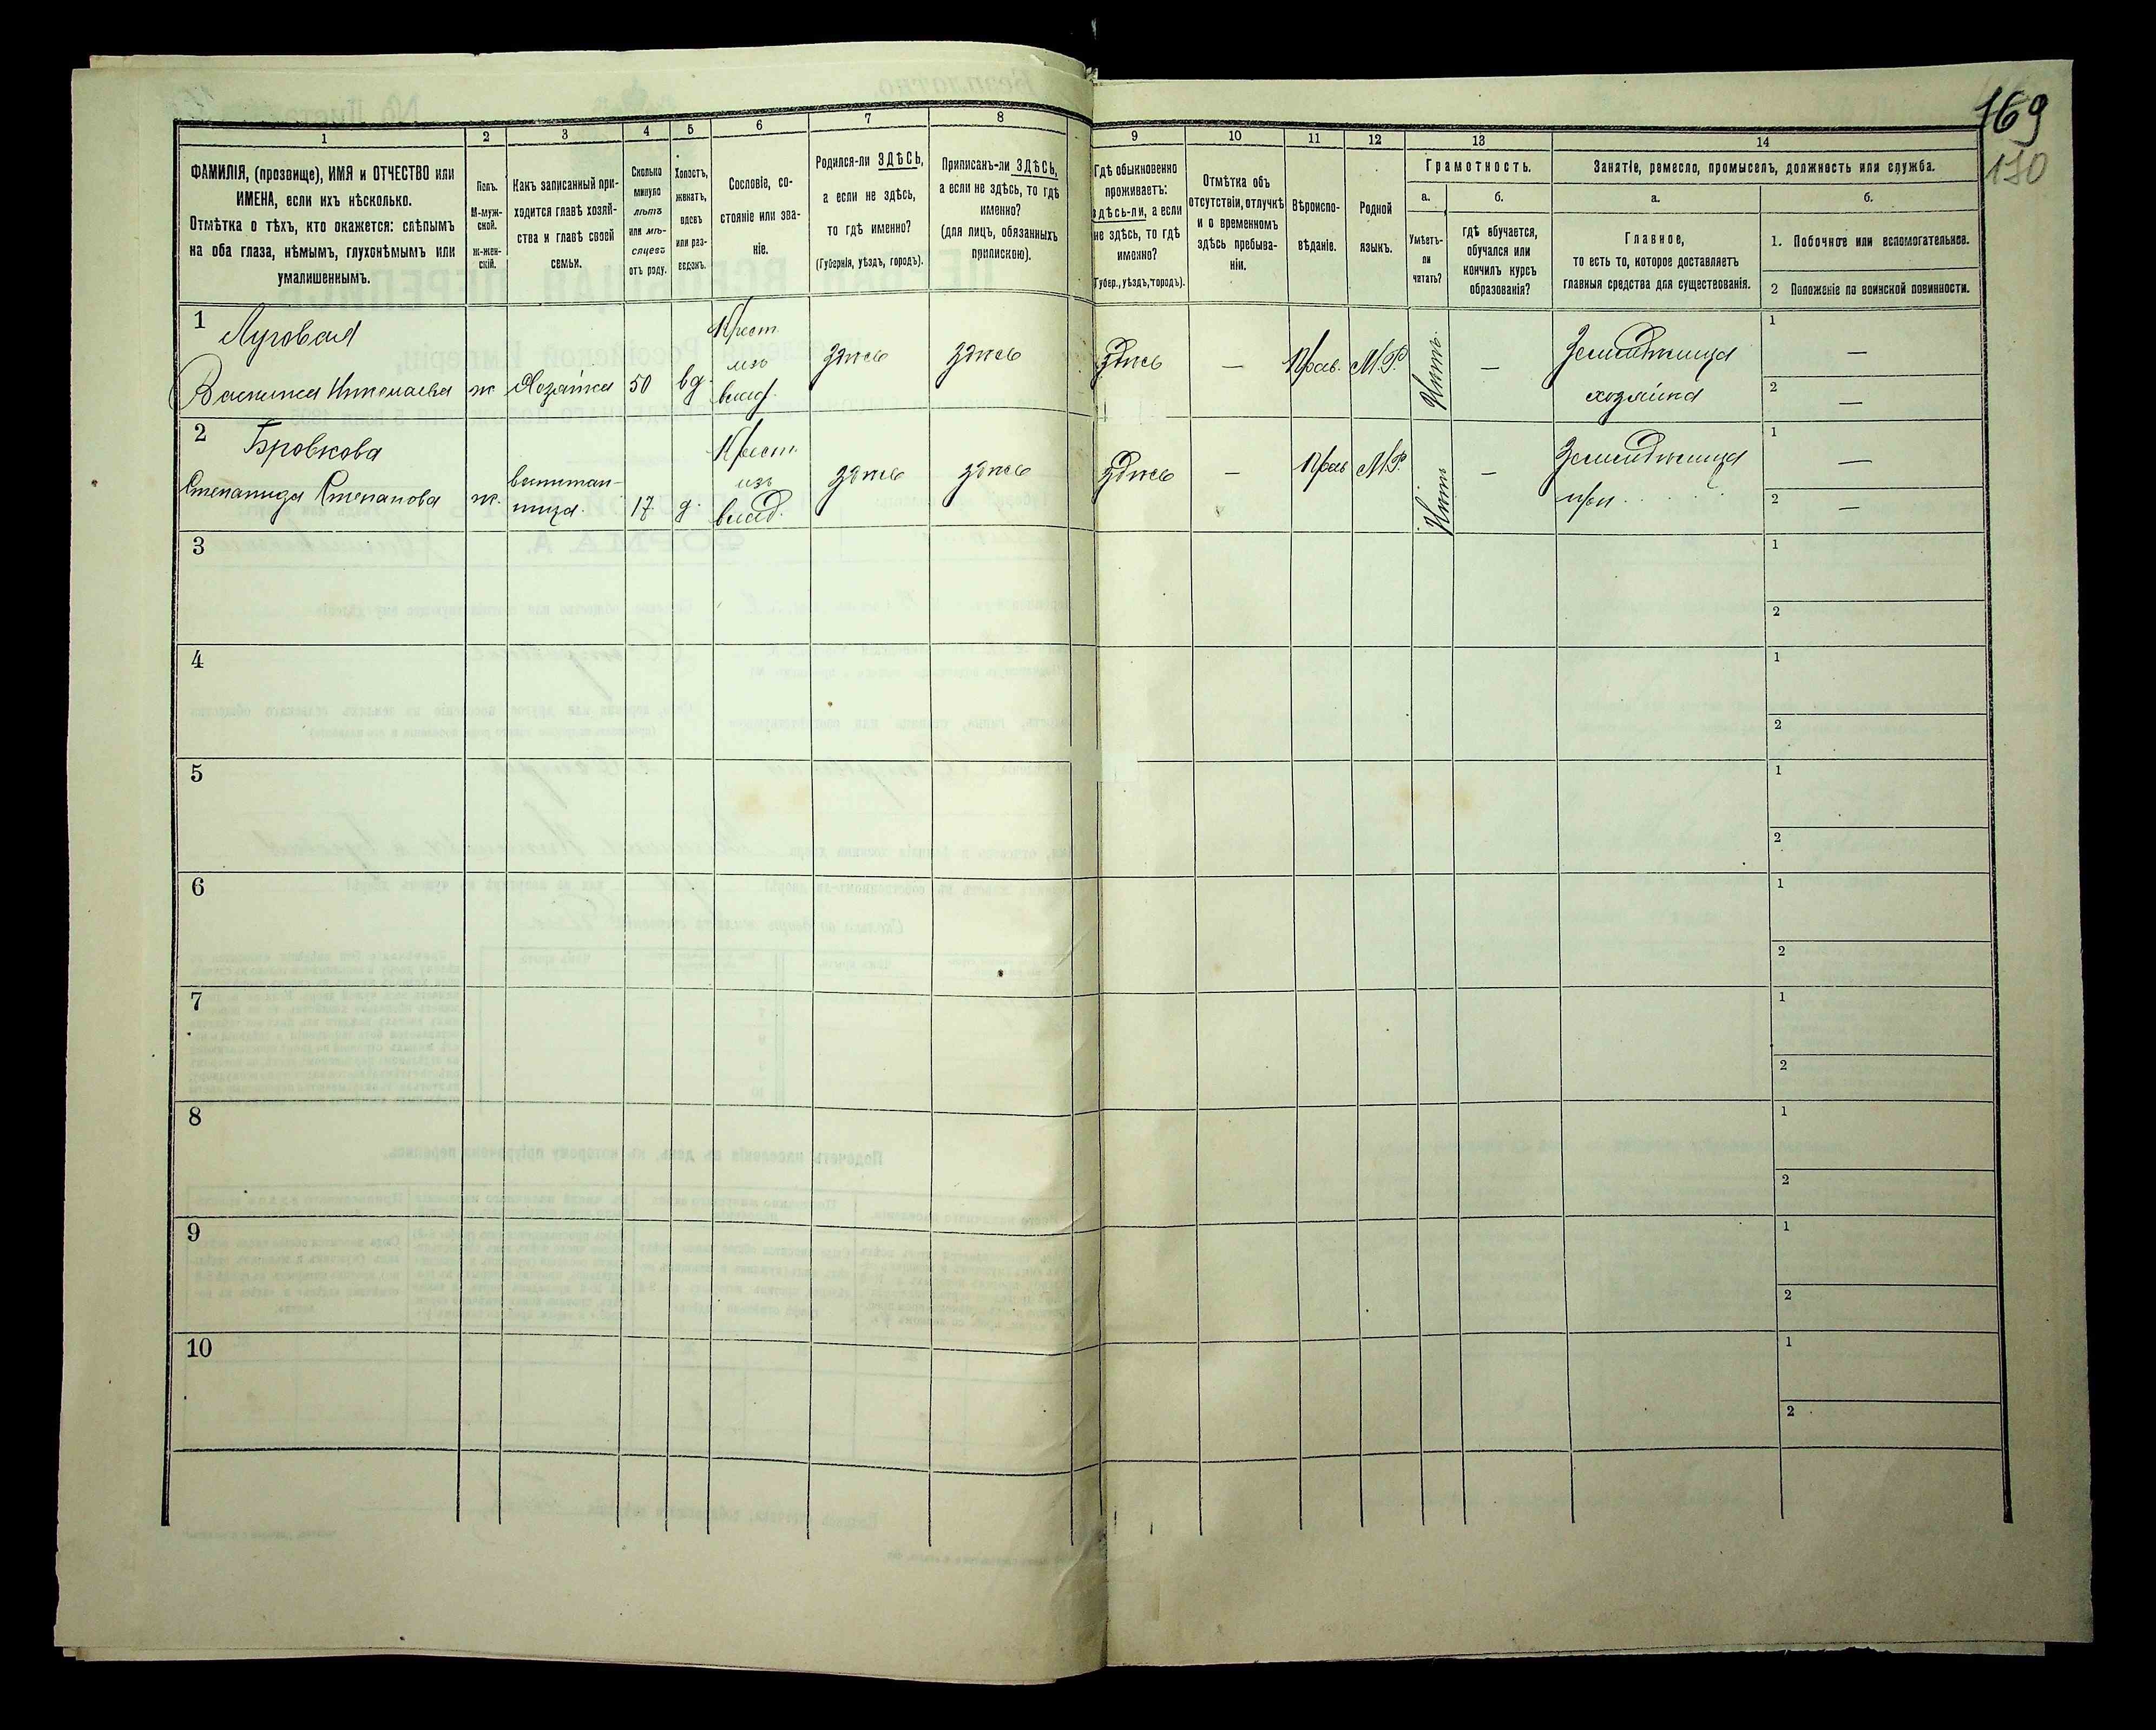 169
170
1
2
3
4
5
6
7
8
9
10
11
12
13
14
ФАМИЛІЯ, (прозвище), ИМЯ и ОТЧЕСТВО или
ИМЕНА, если ихъ нѣсколько.
Отмѣтка о тѣхъ, кто окажется: слѣпымъ
на оба глаза, нѣмымъ, глухонѣмымъ или
умалишеннымъ.
Полъ.
М-муж-
ской.
ж-жен-
скій.
Какъ записанный при-
ходится главѣ хозяй-
ства и главѣ своей
семьи.
Сколько
минуло
лѣтъ
или мѣ-
сяцевъ
отъ роду.
Холостъ,
женатъ,
вдовъ
или раз-
веденъ.
Сословіе, со-
стояніе или зва-
ніе.
Родился-ли ЗДѢСЬ,
а если не здѣсь,
то гдѣ именно?
(Губернія, уѣздъ, городъ).
Приписанъ-ли ЗДѢСЬ,
а если не здѣсь, то гдѣ
именно?
(для лицъ, обязанныхъ
припискою).
Гдѣ обыкновенно
проживаетъ:
здѣсь-ли, а если
не здѣсь, то гдѣ
именно?
(Губер., уѣздъ, городъ).
Отмѣтка объ
отсутствіи, отлучкѣ
и о временномъ
здѣсь пребыва-
ніи.
Вѣроиспо-
вѣданіе.
Родной
языкъ.
Грамотность.
а.
Умѣетъ-
ли
читать?
б.
гдѣ обучается,
обучался или
кончилъ курсъ
образованія?
Занятіе, ремесло, промыселъ, должность или служба.
а.
Главное,
то есть то, которое доставляетъ
главныя средства для существованія.
б.
1. Побочное или вспомогательное.
2 Положеніе по воинской повинности.
1
Луговая
Василиса Николаева
ж
Хозяйка
50
вд.
Крест.
изъ
влад.
здѣсь
здѣсь
здѣсь
—
Прав.
М.Р.
Нѣтъ
—
Земледѣлица
хозяйка
1
—
2
—
2
Бровкова
Степанида Степанова
ж.
воспитан-
ница.
17.
д.
Крест.
изъ
влад.
здѣсь
здѣсь
здѣсь
—
Прав
М.Р.
Нѣтъ
—
Земледѣлица
при
1
—
2
—
3
1
2
4
1
2
5
1
2
6
1
2
7
1
2
8
1
2
9
1
2
10
1
2